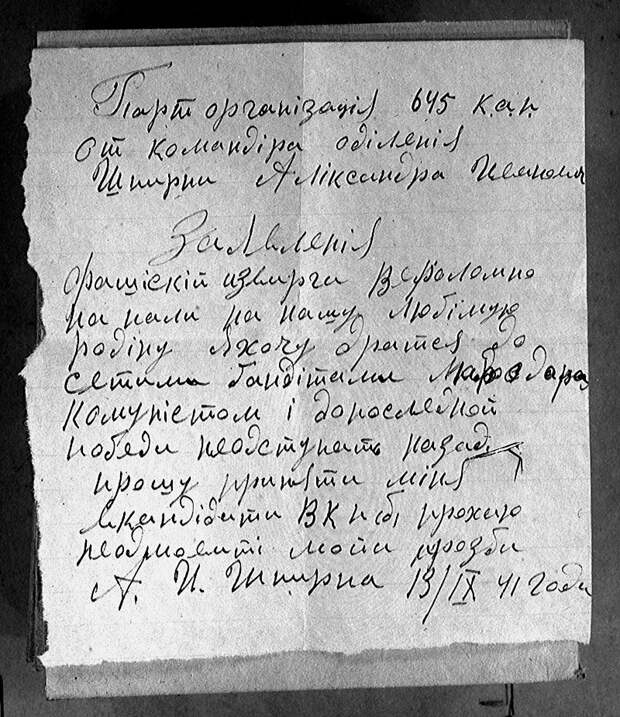 Парт організація 645 к.а.п.
от командіра оділенія
Шпирни Аліксандра
Заявленія
фашіскій изверга вероломно
на нали на нашу любімую
родіну Яхочу братся до
сетими бандітами
комуністом і дорослєдной
победи неодступать назад.
прошу прийняти міня
вкандідати ВКПб, прошу
моти прозби
А. И. Шпирна 13/IX 41 года